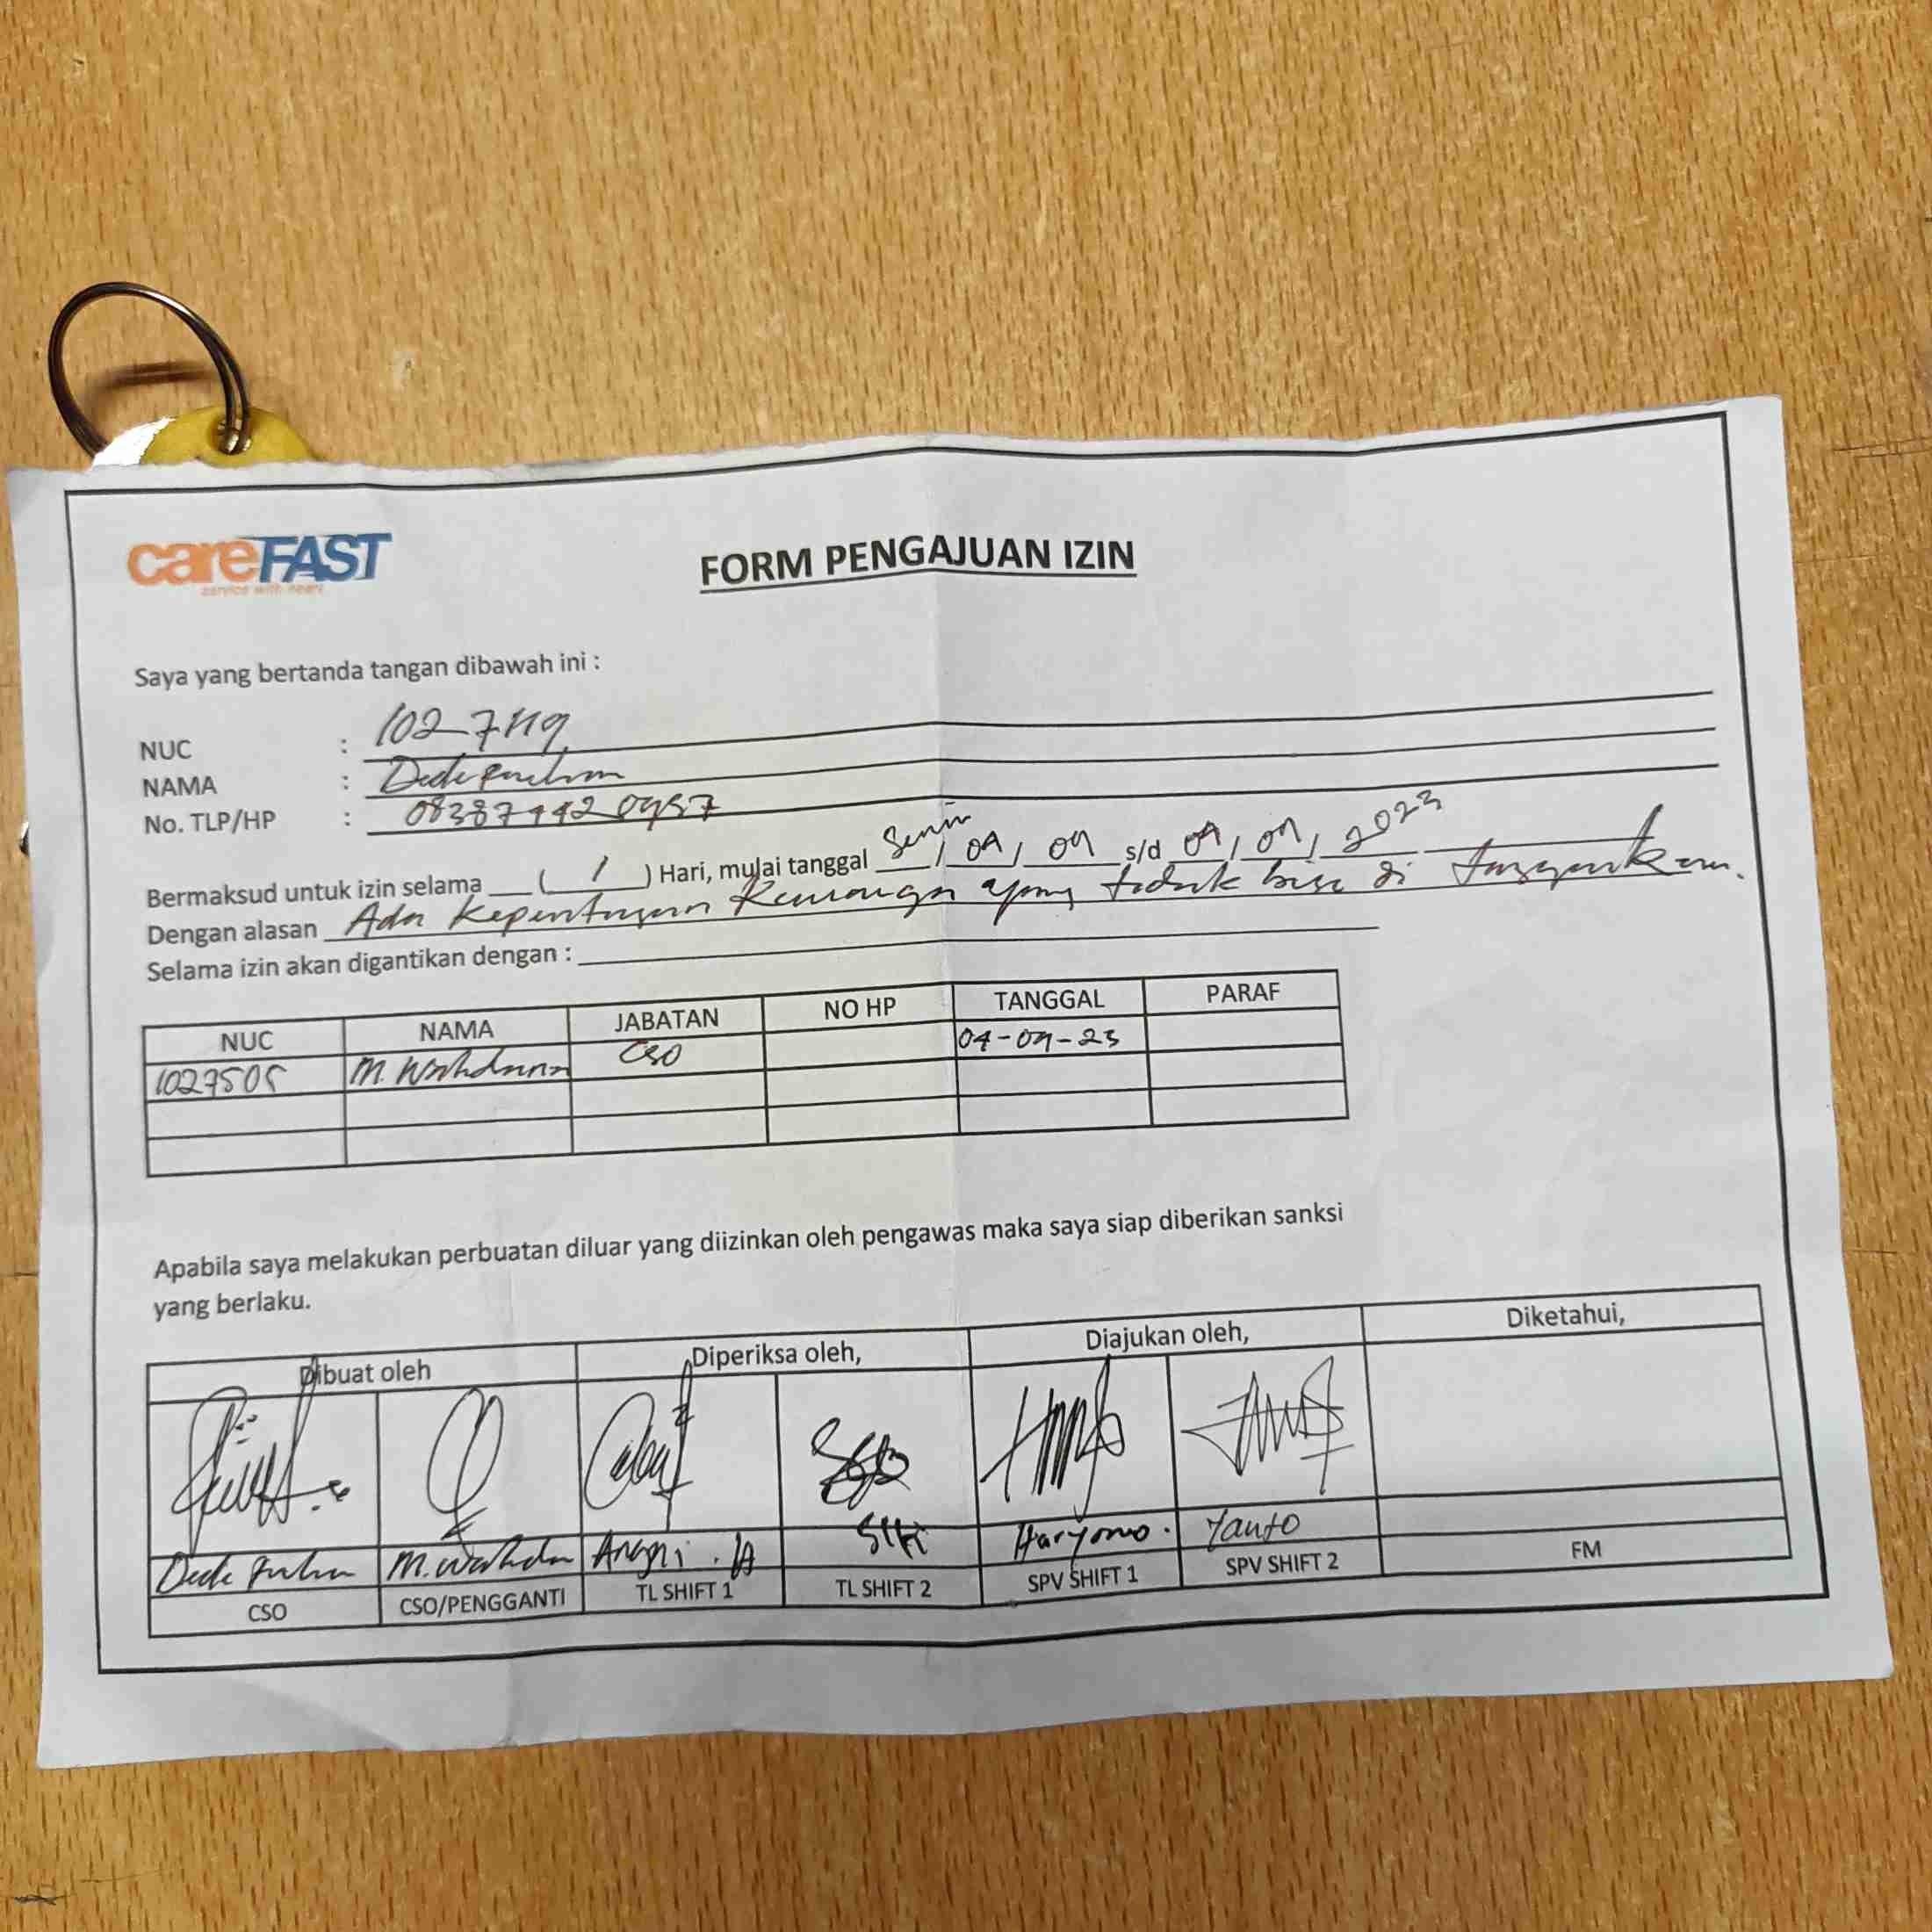 careFAST
service with heart
FORM PENGAJUAN IZIN
Saya yang bertanda tangan dibawah ini :
NUC :
NAMA : Dede
No. TLP/HP :
Bermaksud untuk izin selama ( 1 ) Hari, mulai tanggal Senin / 04 / 09 s/d 04 / 09 / 2023
Dengan alasan Ada Kepentingan Keluarga yang tidak bisa di
Selama izin akan digantikan dengan :
NUC NAMA JABATAN NO HP TANGGAL PARAF
1027505 M. CSO 04-09-23
Apabila saya melakukan perbuatan diluar yang diizinkan oleh pengawas maka saya siap diberikan sanksi
yang berlaku.
Dibuat oleh Diperiksa oleh, Diajukan oleh, Diketahui,
Dede M. Haryono. Yanto
CSO CSO/PENGGANTI TL SHIFT 1 TL SHIFT 2 SPV SHIFT 1 SPV SHIFT 2 FM